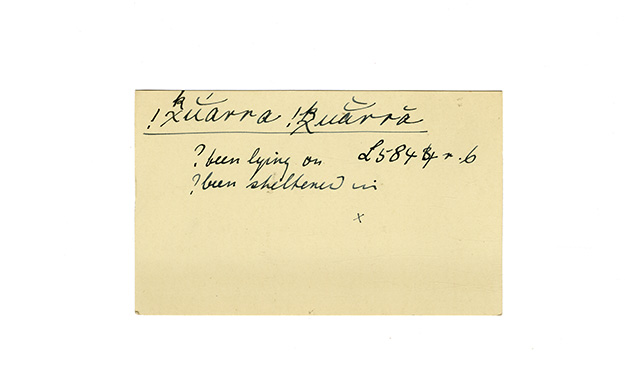 !k̆úarra !k̆uărră
? been lying on L 5844 r. 6
? been sheltered in
x